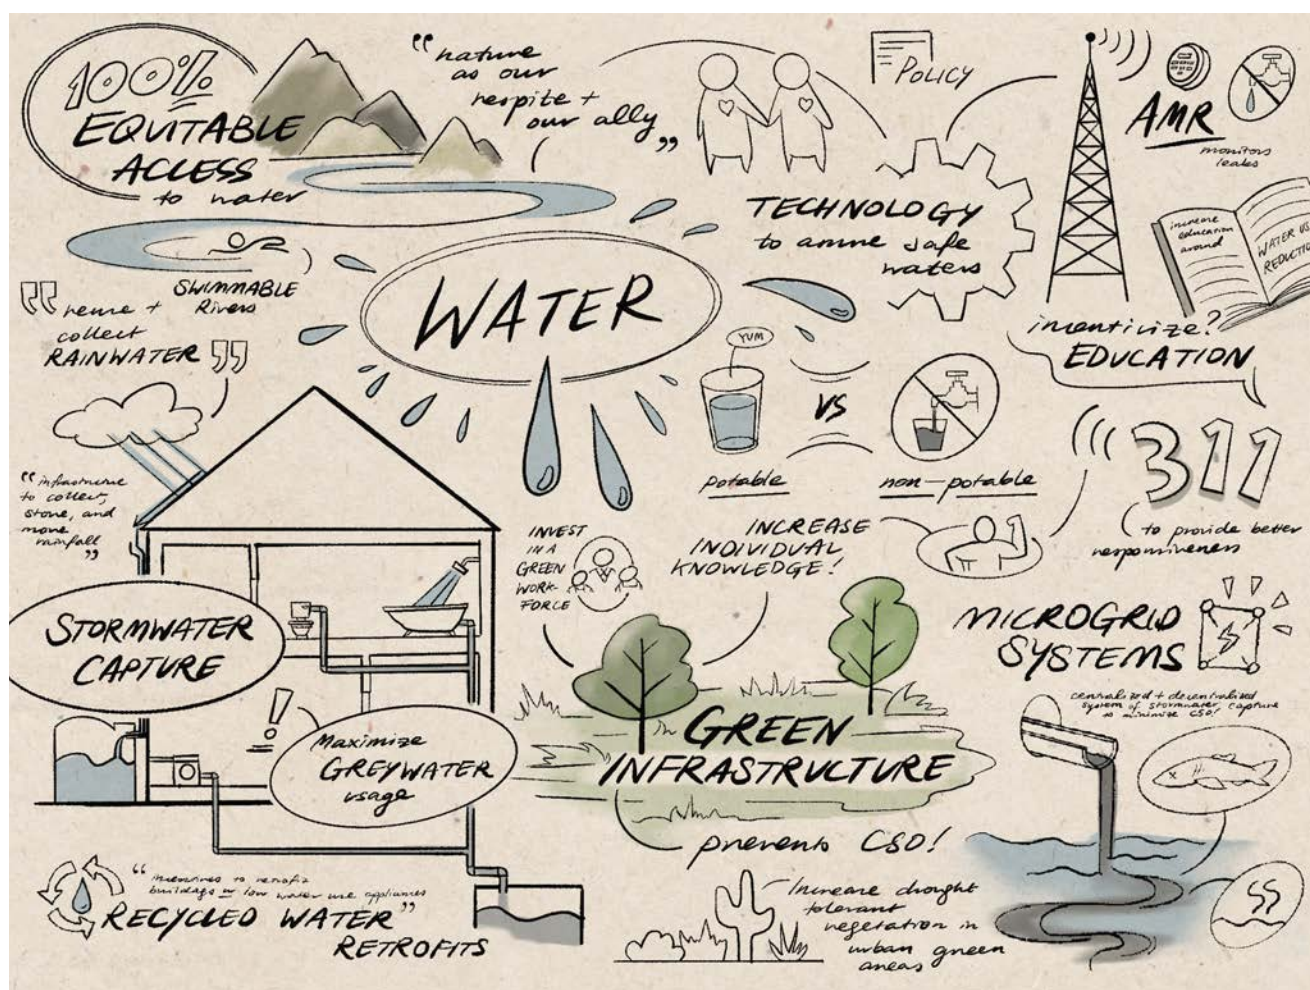 100%
EQUITABLE
ACCESS
to water
“nature
as our
respite +
our ally”
POLICY
AMR
monitors
leaks
TECHNOLOGY
to ensure safe
waters
increase
education
around
WATER US
REDUCTIO
SWIMMABLE
Rivers
WATER
"reuse +
collect
RAINWATER"
incentivize?
EDUCATION
YUM
VS
potable
non-potable
311
to provide better
responsiveness
“infrastructure
to collect,
store, and
move
rainfall”
INVEST
IN A
GREEN
WORK-
FORCE
INCREASE
INDIVIDUAL
KNOWLEDGE!
STORMWATER
CAPTURE
MICROGRID
SYSTEMS
centralized + decentralized
system of stormwater capture
to minimize CSO!
!
Maximize
GREYWATER
usage
GREEN
INFRASTRUCTURE
prevents CSO!
“incentives to retrofit
buildings w low water use appliances”
RECYCLED WATER
RETROFITS
Increase drought
tolerant
vegetation in
urban green
areas